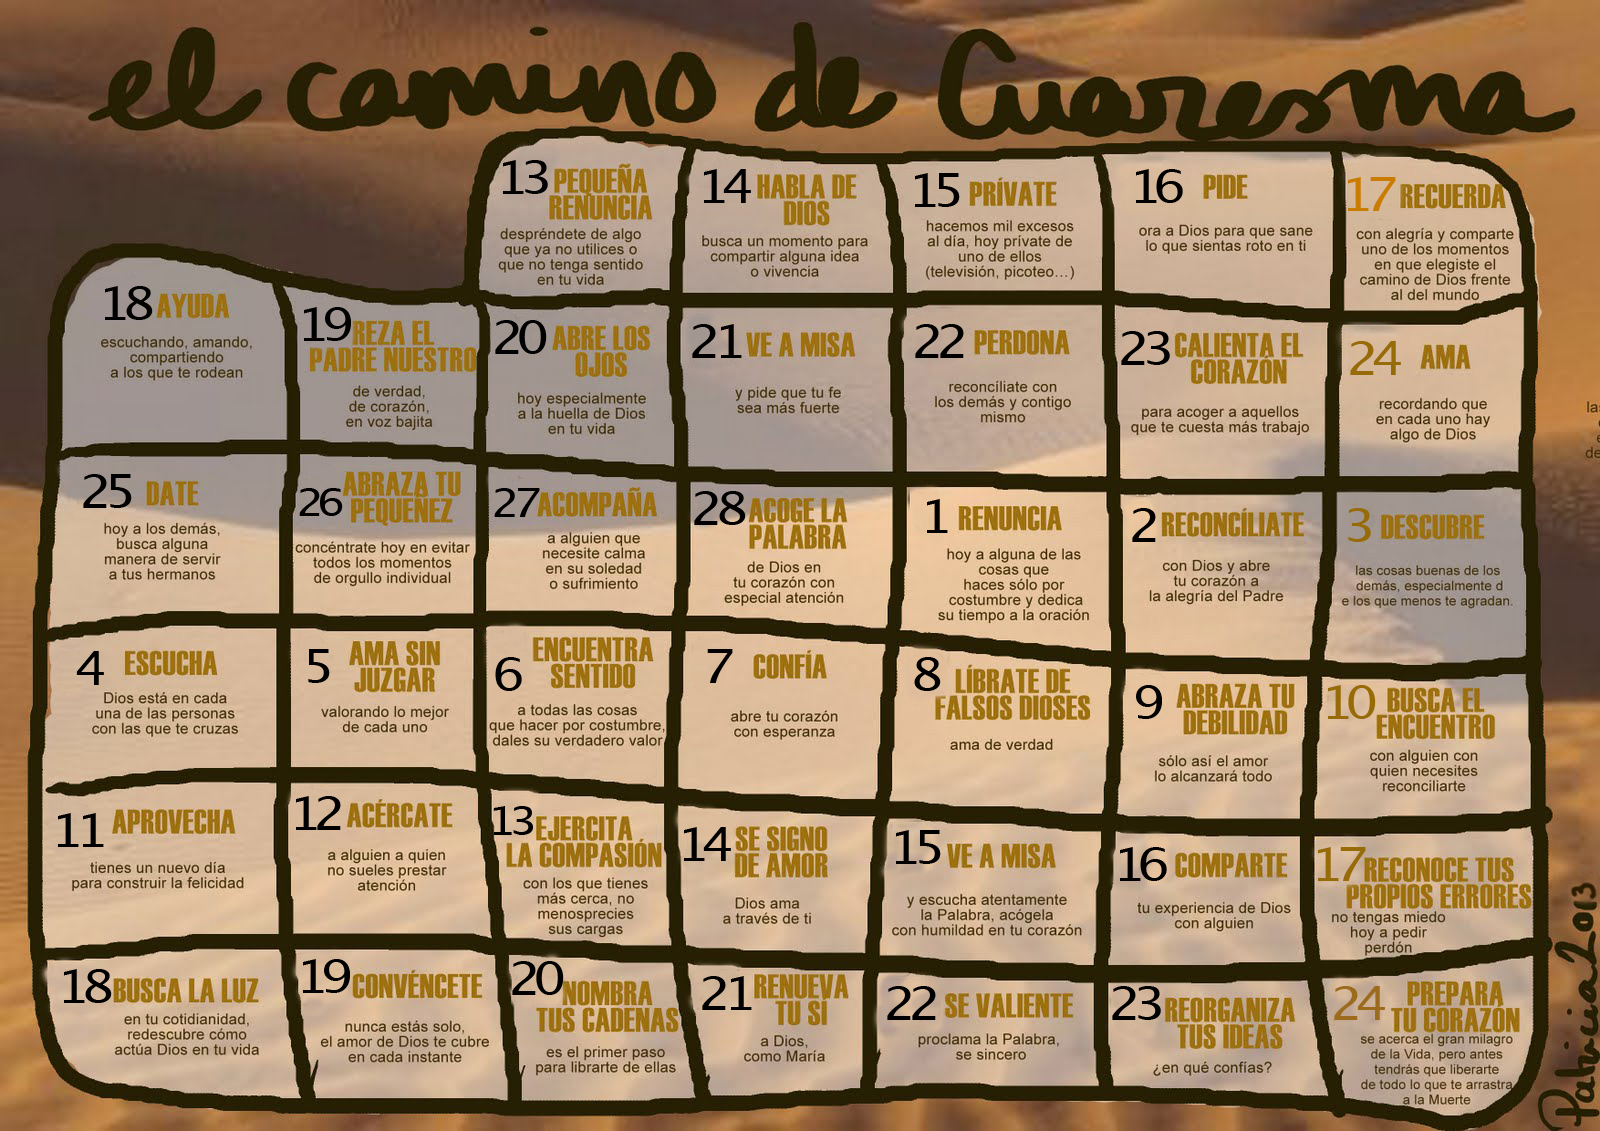 el camino de Cuaresma
13 PEQUEÑA
RENUNCIA
despréndete de algo
que ya no utilices o
que no tenga sentido
en tu vida
14 HABLA DE
DIOS
busca un momento para
compartir alguna idea
o vivencia
15 PRÍVATE
hacemos mil excesos
al día, hoy prívate de
uno de ellos
(televisión, picoteo...)
16 PIDE
ora a Dios para que sane
lo que sientas roto en ti
17 RECUERDA
con alegría y comparte
uno de los momentos
en que elegiste el
camino de Dios frente
al del mundo
18 AYUDA
escuchando, amando,
compartiendo
a los que te rodean
19 REZA EL
PADRE NUESTRO
de verdad,
de corazón,
en voz bajita
20 ABRE LOS
OJOS
hoy especialmente
a la huella de Dios
en tu vida
21 VE A MISA
y pide que tu fe
sea más fuerte
22 PERDONA
reconcíliate con
los demás y contigo
mismo
23 CALIENTA EL
CORAZÓN
para acoger a aquellos
que te cuesta más trabajo
24 AMA
recordando que
en cada uno hay
algo de Dios
25 DATE
hoy a los demás,
busca alguna
manera de servir
a tus hermanos
26 ABRAZA TU
PEQUEÑEZ
concéntrate hoy en evitar
todos los momentos
de orgullo individual
27 ACOMPAÑA
a alguien que
necesite calma
en su soledad
o sufrimiento
28 ACOGE LA
PALABRA
de Dios en
tu corazón con
especial atención
1 RENUNCIA
hoy a alguna de las
cosas que
haces sólo por
costumbre y dedica
su tiempo a la oración
2 RECONCÍLIATE
con Dios y abre
tu corazón a
la alegría del Padre
3 DESCUBRE
las cosas buenas de los
demás, especialmente d
e los que menos te agradan.
4 ESCUCHA
Dios está en cada
una de las personas
con las que te cruzas
5 AMA SIN
JUZGAR
valorando lo mejor
de cada uno
6 ENCUENTRA
SENTIDO
a todas las cosas
que hacer por costumbre,
dales su verdadero valor
7 CONFÍA
abre tu corazón
con esperanza
8 LÍBRATE DE
FALSOS DIOSES
ama de verdad
9 ABRAZA TU
DEBILIDAD
sólo así el amor
lo alcanzará todo
10 BUSCA EL
ENCUENTRO
con alguien con
quien necesites
reconciliarte
11 APROVECHA
tienes un nuevo día
para construir la felicidad
12 ACÉRCATE
a alguien a quien
no sueles prestar
atención
13 EJERCITA
LA COMPASIÓN
con los que tienes
más cerca, no
menosprecies
sus cargas
14 SE SIGNO
DE AMOR
Dios ama
a través de ti
15 VE A MISA
y escucha atentamente
la Palabra, acógela
con humildad en tu corazón
16 COMPARTE
tu experiencia de Dios
con alguien
17 RECONOCE TUS
PROPIOS ERRORES
no tengas miedo
hoy a pedir
perdón
18 BUSCA LA LUZ
en tu cotidianidad,
redescubre cómo
actúa Dios en tu vida
19 CONVÉNCETE
nunca estás solo,
el amor de Dios te cubre
en cada instante
20 NOMBRA
TUS CADENAS
es el primer paso
para librarte de ellas
21 RENUEVA
TU SI
a Dios,
como María
22 SE VALIENTE
proclama la Palabra,
se sincero
23 REORGANIZA
TUS IDEAS
¿en qué confías?
24 PREPARA
TU CORAZÓN
se acerca el gran milagro
de la Vida, pero antes
tendrás que liberarte
de todo lo que te arrastra
a la Muerte
Patricia 2013